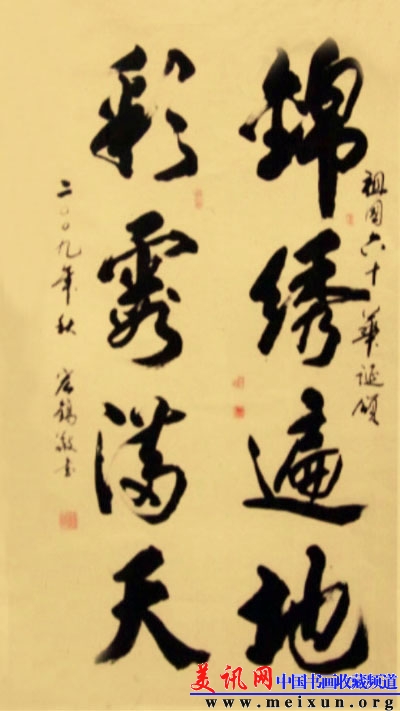 祖国六十華诞颂
錦绣遍地
彩霞满天
二〇〇九年秋
敬书
美讯网 中国书画收藏频道
www.meixun.org